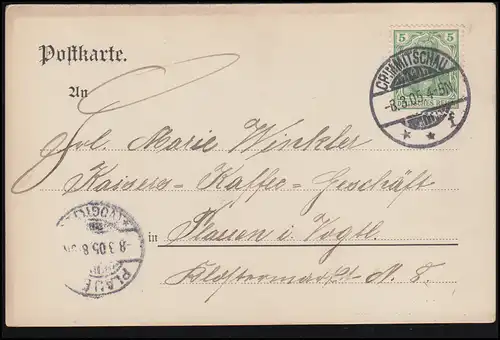 Postkarte.
5
CRIMMITSCHAU
-8.3.05.4-5N.
* * f
An
Frl. Marie Winkler
Kaisers-Kaffee-Geschäft
in Plauen i. Vogtl.
Klostermarkt N. 8.
(VOGTL.)
-8 3 05 8-9N
PLAUEN